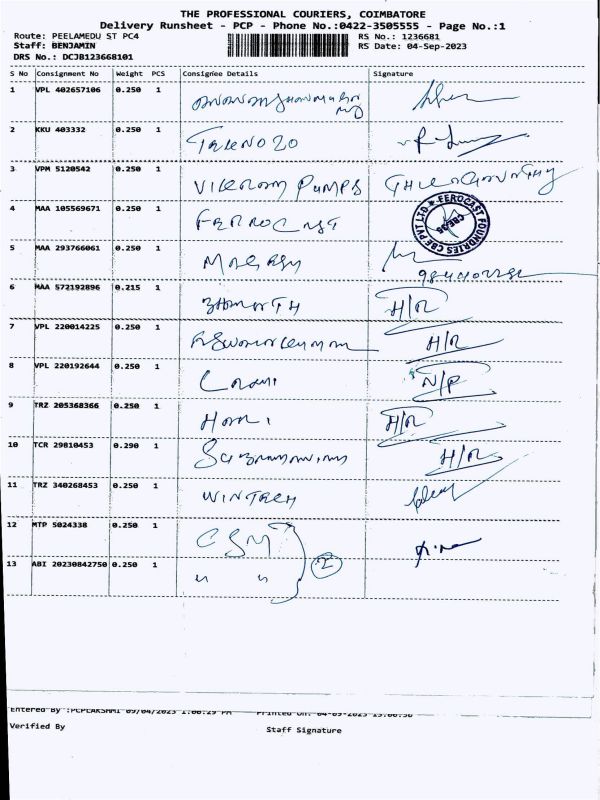 THE PROFESSIONAL COURIERS, COIMBATORE
Delivery Runsheet - PCP - Phone No.:0422-3505555 - Page No.:1
Route: PEELAMEDU ST PC4 RS No.: 1236681
Staff: BENJAMIN RS Date: 04-Sep-2023
DRS No.: DCJB123668101
S No Consignment No Weight PCS Consignee Details Signature
1 VPL 402657106 0.250 1
2 KKU 403332 0.250 1
3 VPM 5120542 0.250 1 VIKRAM PUMPS
4 MAA 105569671 0.250 1 FERROCAST
FEROCAST FOUNDRIES CBE PVT LTD
5 MAA 293766061 0.250 1
6 MAA 572192896 0.215 1 BHARATH H/R
7 VPL 220014225 0.250 1 H/R
8 VPL 220192644 0.250 1 N/P
9 TRZ 205368366 0.250 1 HARI H/R
10 TCR 29810453 0.290 1 H/R
11 TRZ 340268453 0.250 1 WINTECH
12 MTP 5024338 0.250 1 CSM
13 ABI 20230842750 0.250 1 " " 2
Entered By :PCPLAKSHMI 09/04/2023 1:00:29 PM Printed On: 04-09-2023
Verified By Staff Signature